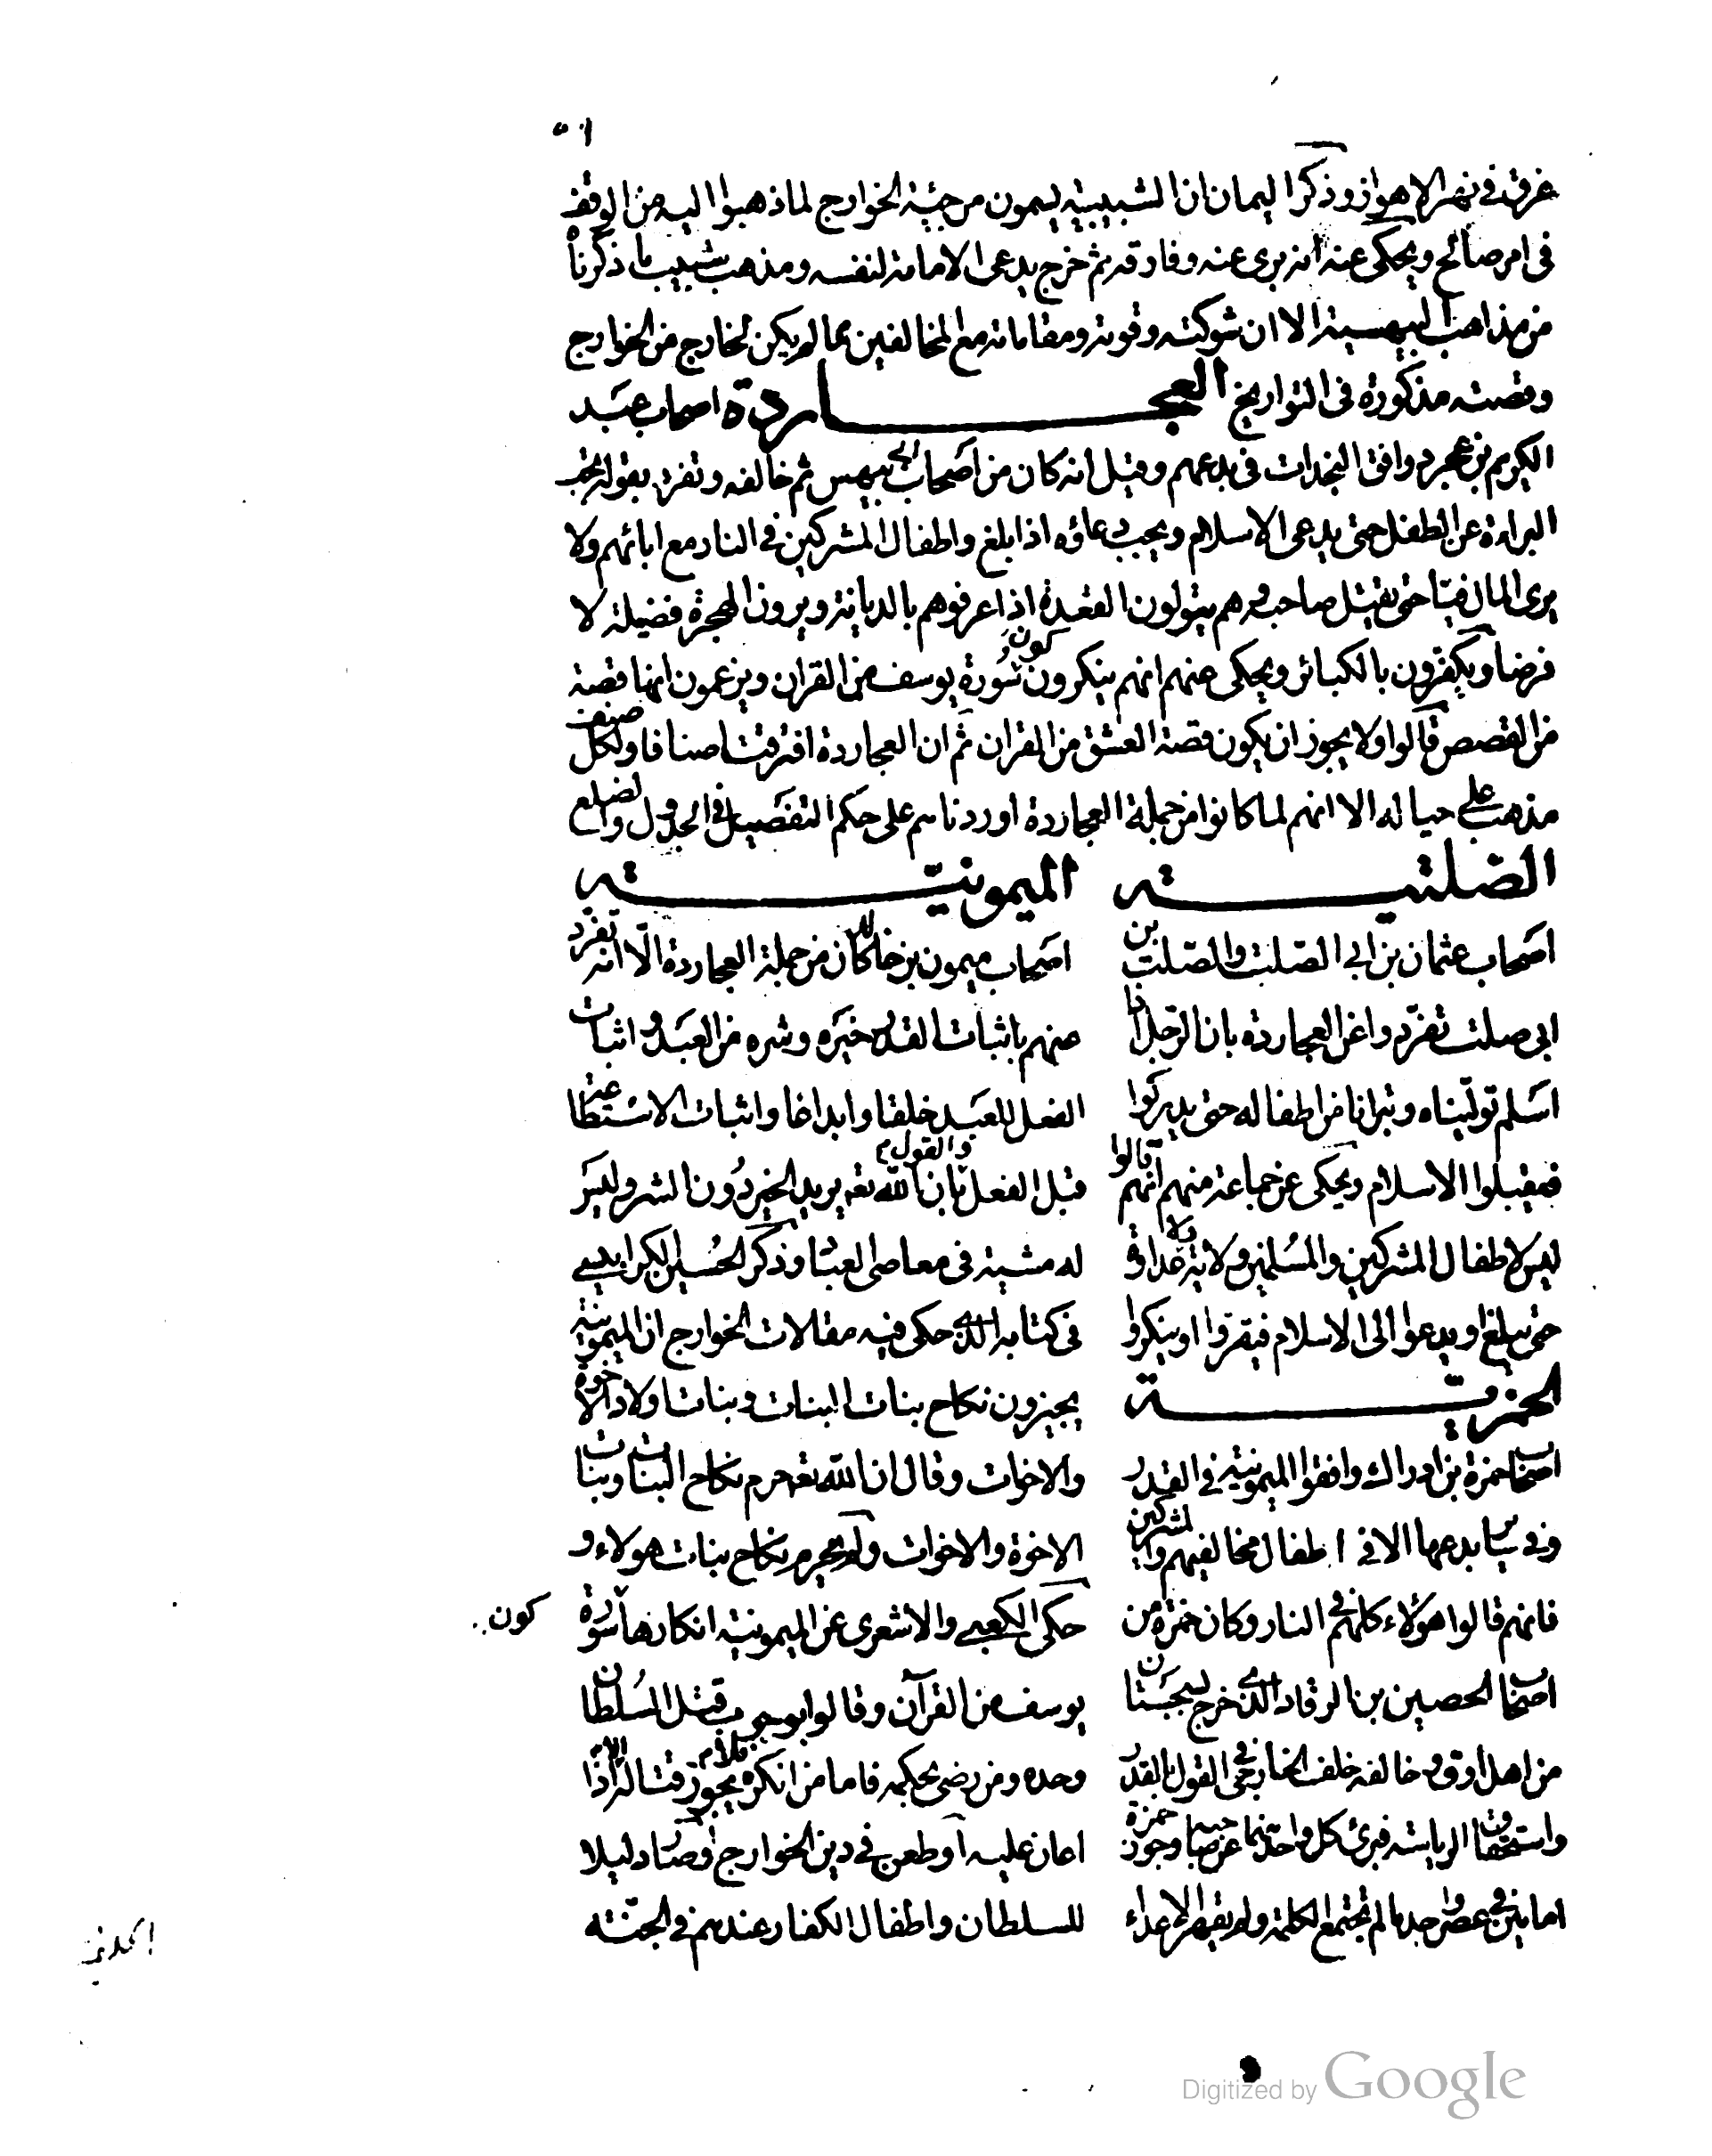 ٥١
غرق في نهر الاهواز وذكر اليمان ان الشبيبية يسمون مرجئة الخوارج لما ذهبوا اليه من الوقف
في امر صالح ويحكى عنه انه برى عنه وفارقه ثم خرج يدعى الامامة لنفسه ومذهب شبيب ما ذكرناه
من مذاهب البيهسية الا ان شوكته وقوته ومقاماته مع المخالفين مما لم يكن لخارج من الخوارج
وقصته مذكورة في التواريخ العجاردة اصحاب عبد
الكريم بن عجرد وافق النجدات في بدعهم وقيل انه كان من اصحاب ابى بيهس ثم خالفه وتفرد بقوله تجب
البراءة عن الطفل حتى يدعى الاسلام ويجب دعاؤه اذا بلغ واطفال المشركين في النار مع ابائهم ولا
يرى المال فيئا حتى يقتل صاحبه وهم يتولون القعدة اذا عرفوهم بالديانة ويرون الهجرة فضيلة لا
فرضا ويكفرون بالكبائر ويحكى عنهم انهم ينكرون كون سورة يوسف من القران ويزعمون انها قصة
من القصص قالوا ولا يجوز ان يكون قصة العشق من القران ثم ان العجاردة افترقت اصنافا ولكل صنف
مذهب على حياله الا انهم لما كانوا من جملة العجاردة اوردناهم على حكم التفصيل في الجدول والضلع
الصلتية
اصحاب عثمان بن ابي الصلت والصلت بن
ابى صلت تفردوا عن العجاردة بان الرجل اذا
اسلم توليناه وتبرانا من اطفاله حتى يدركوا
فيقبلوا الاسلام ويحكى عن جماعة منهم انهم قالوا
ليس لاطفال المشركين والمسلمين ولاية ولا عداوة
حتى يبلغوا ويدعوا الى الاسلام فيقروا او ينكروا
الحمزية
اصحاب حمزة بن ادراك وافقوا الميمونية في القدر
وفي سائر بدعها الا في اطفال مخالفيهم والمشركين
فانهم قالوا هؤلاء كلهم في النار وكان حمزة من
اصحاب الحصين بن الرقاد الذى خرج بسجستان
من اهل اوق وخالفه خلف الخارجى في القول بالقدر
واستحقاق الرياسة فبرئ كل واحد منهما عن صاحبه وجوز حمزة
امامين في عصر واحد ما لم تجتمع الكلمة ولم يقهر الاعداء
الميمونية
اصحاب ميمون بن خالد كان من جملة العجاردة الا انه تفرد
عنهم باثبات القدر خيره وشره من العبد واثبات
الفعل للعبد خلقا وابداعا واثبات الاستطاعة
قبل الفعل والقول بان الله تعه يريد الخير دون الشر وليس
له مشية في معاصى العباد وذكر الحسين الكرابيسي
في كتابه الذى حكى فيه مقالات الخوارج ان الميمونية
يجيزون نكاح بنات البنات وبنات اولاد الاخوة
والاخوات وقال ان الله تعه حرم نكاح البنات وبنات
الاخوة والاخوات ولم يحرم نكاح بنات هولاء و
حكى الكعبي والاشعرى عن الميمونية انكارها سورة
كون
يوسف من القرآن وقالوا بوجوب قتل السلطان
وحده ومن رضى بحكمه فاما من انكره فلا يجوز قتاله الا اذا
اعان عليه او طعن في دين الخوارج او صار دليلا
للسلطان واطفال الكفار عندهم في الجنة
Digitized by Google